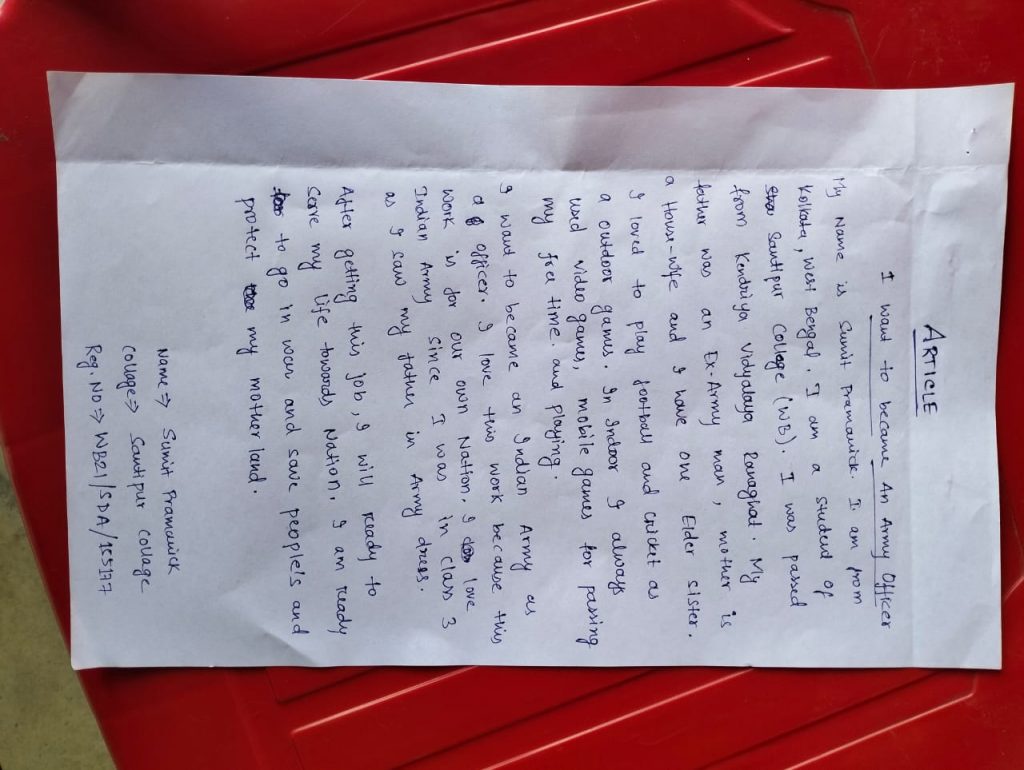 ARTICLE
I want to became An Army Officer
My Name is Sumit Pramanick. I am from
Kolkata, West Bengal. I am a student of
Santipur College (WB). I was passed
from Kendriya Vidyalaya Ranaghat. My
father was an Ex-Army man, mother is
a House-wife and I have one Elder sister.
I loved to play football and cricket as
a outdoor games. In Indoor I always
used video games, mobile games for passing
my free time. and playing.
I want to became an Indian Army as
a officer. I love this work because this
work is for our own Nation. I love
Indian Army since I was in class 3
as I saw my father in Army dress.
After getting this job, I will ready to
serve my life towards Nation. I am ready
to go in war and save people's and
protect my mother land.
Name ⇒ Sumit Pramanick
College ⇒ Santipur College
Reg. No ⇒ WB21/SDA/155177